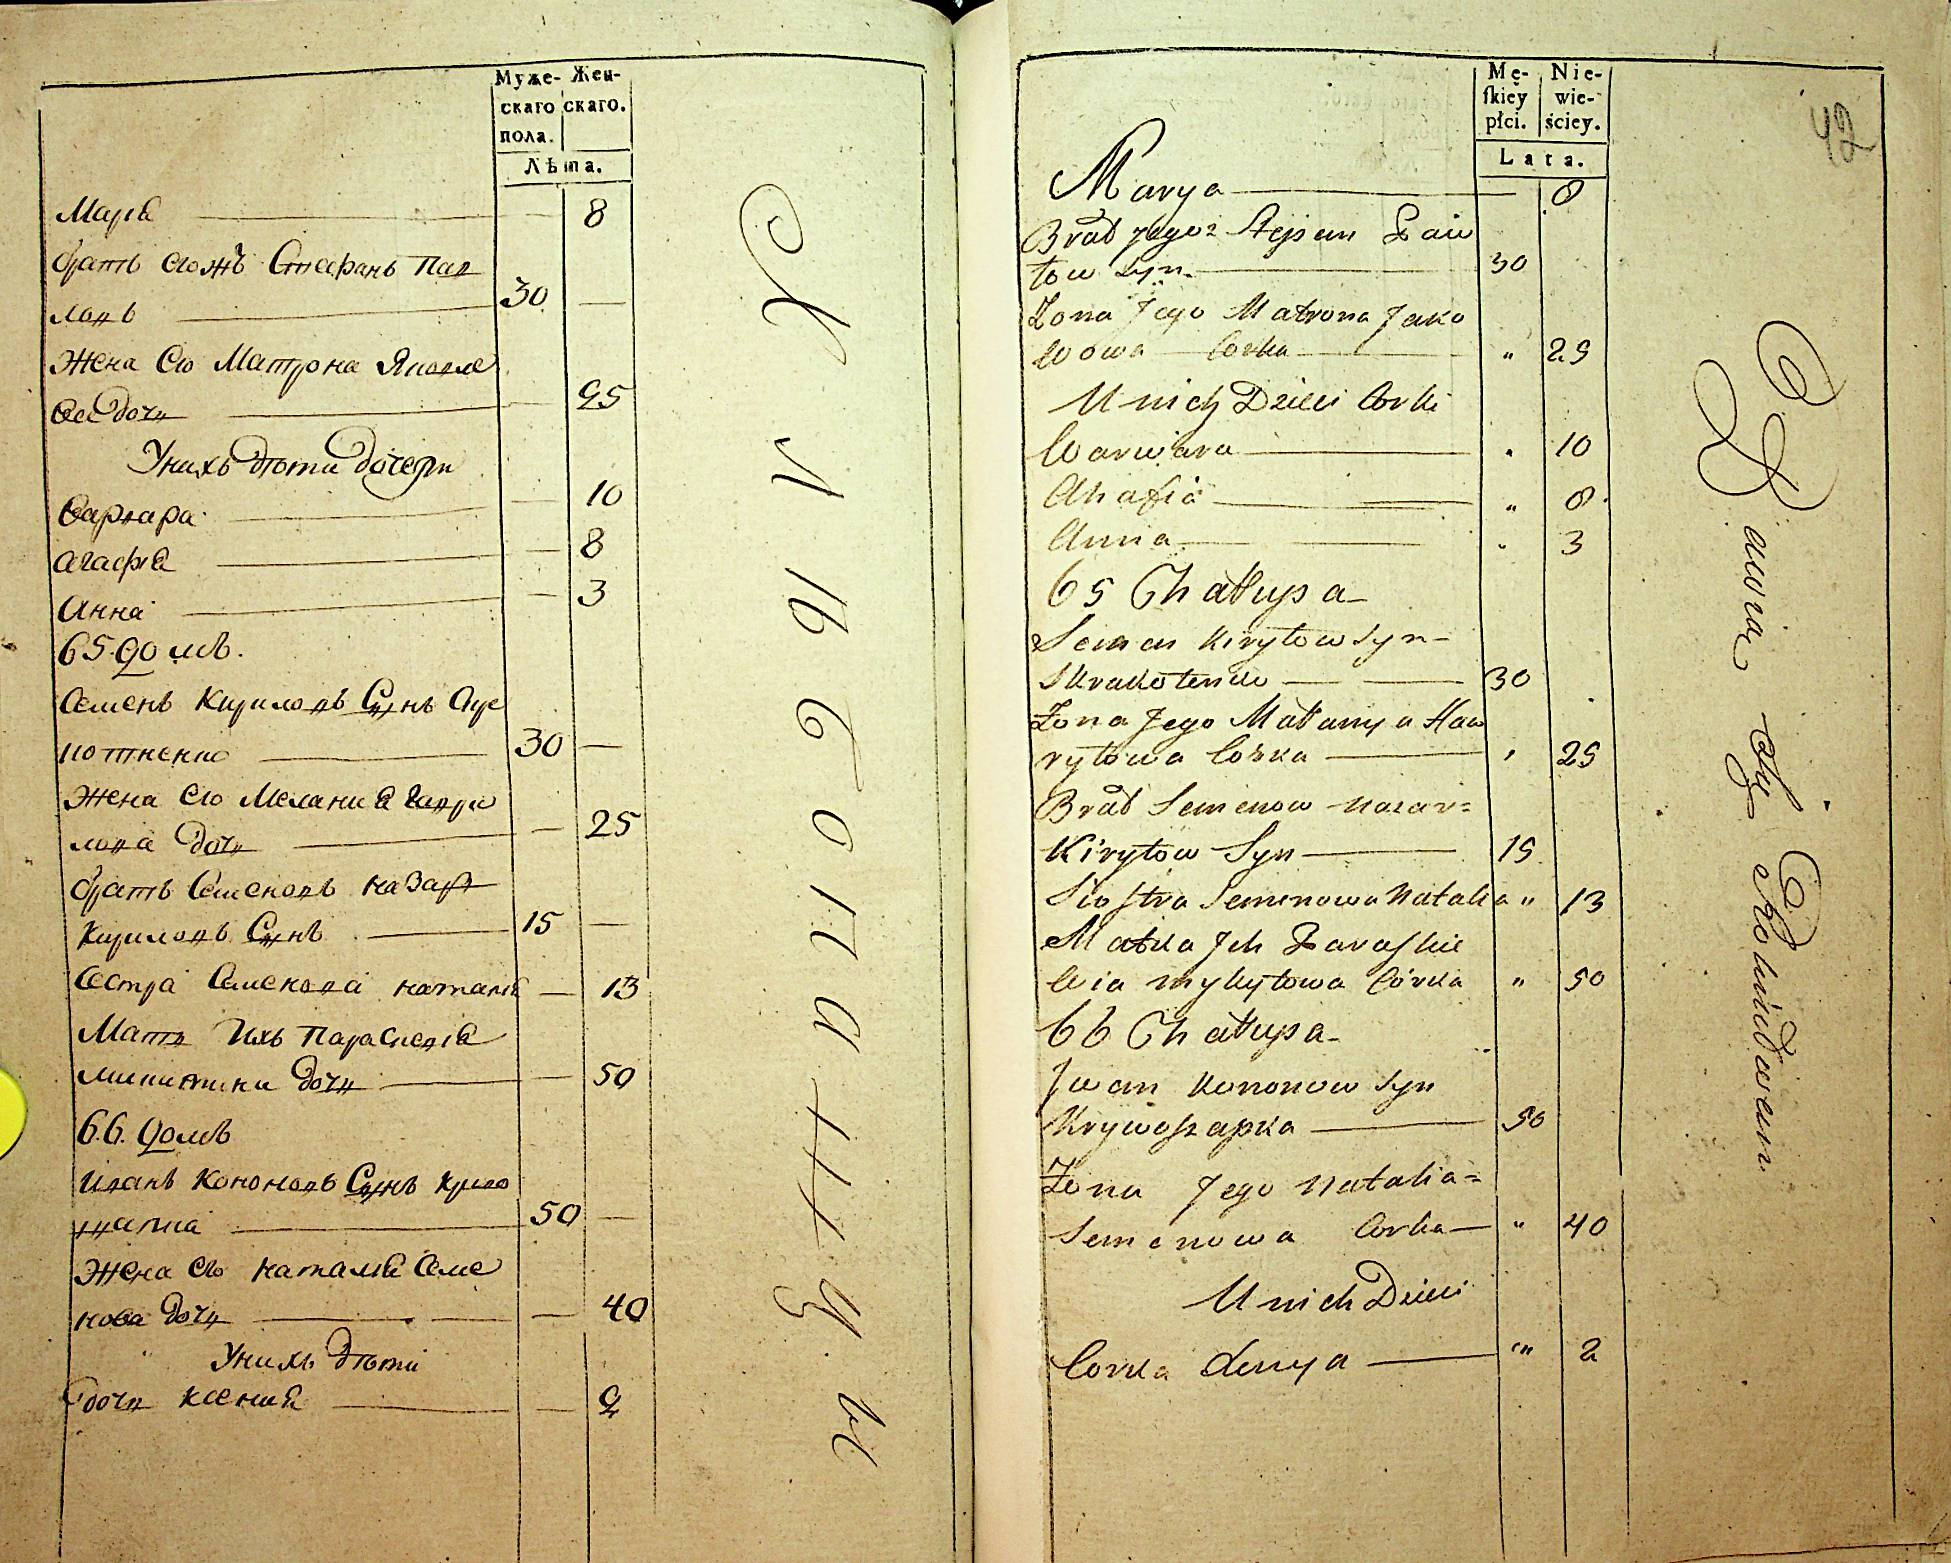 Муже-
скаго
пола.
Жен-
скаго.
Лѣта.
Марія 8
братъ егожъ Стефанъ Пав
ловъ 30
Жена его Матрона Яковле
ва дочь 25
Унихъ дѣти дочери
Варвара 10
Агафія 8
Анна 3
65. домъ.
Семенъ Кириловъ Сынъ
30
Жена его Меланія Гаври
лова дочь 25
братъ Семеновъ Назаръ
Кириловъ Сынъ 15
Сестра Семенова Наталія 13
Мать Ихъ Параскевія
Микитина дочь 50
66. домъ
Иванъ Кононовъ Сынъ Криво
шапка 50
Жена его Наталія Семе
нова дочь 40
Унихъ дѣти
дочь Ксенія 2
Mę-
ſkiey
płci.
Nie-
wie-
ściey.
Lata.
42
Marya 8
Brat jegoż Stefan Paw
łow Syn 30
Zona Jego Matrona Jako
wowa Corka " 25
U nich Dzieci Corki
Warwara " 10
Ahafia " 8
Anna " 3
65 Chałupa
Semen Kiryłow Syn
30
Zona Jego Małanya Haw
ryłowa Corka " 25
Brat Semenow Nazar=
Kiryłow Syn 15
Siostra Semenowa Natalia " 13
Matka Jch Paraskie
wia Mykytowa Córka " 50
66 Chałupa
Jwan Kononow Syn
Krywoszapka 50
Zona Jego Natalia=
Semenowa Corka " 40
U nich Dzieci
Corka " 2